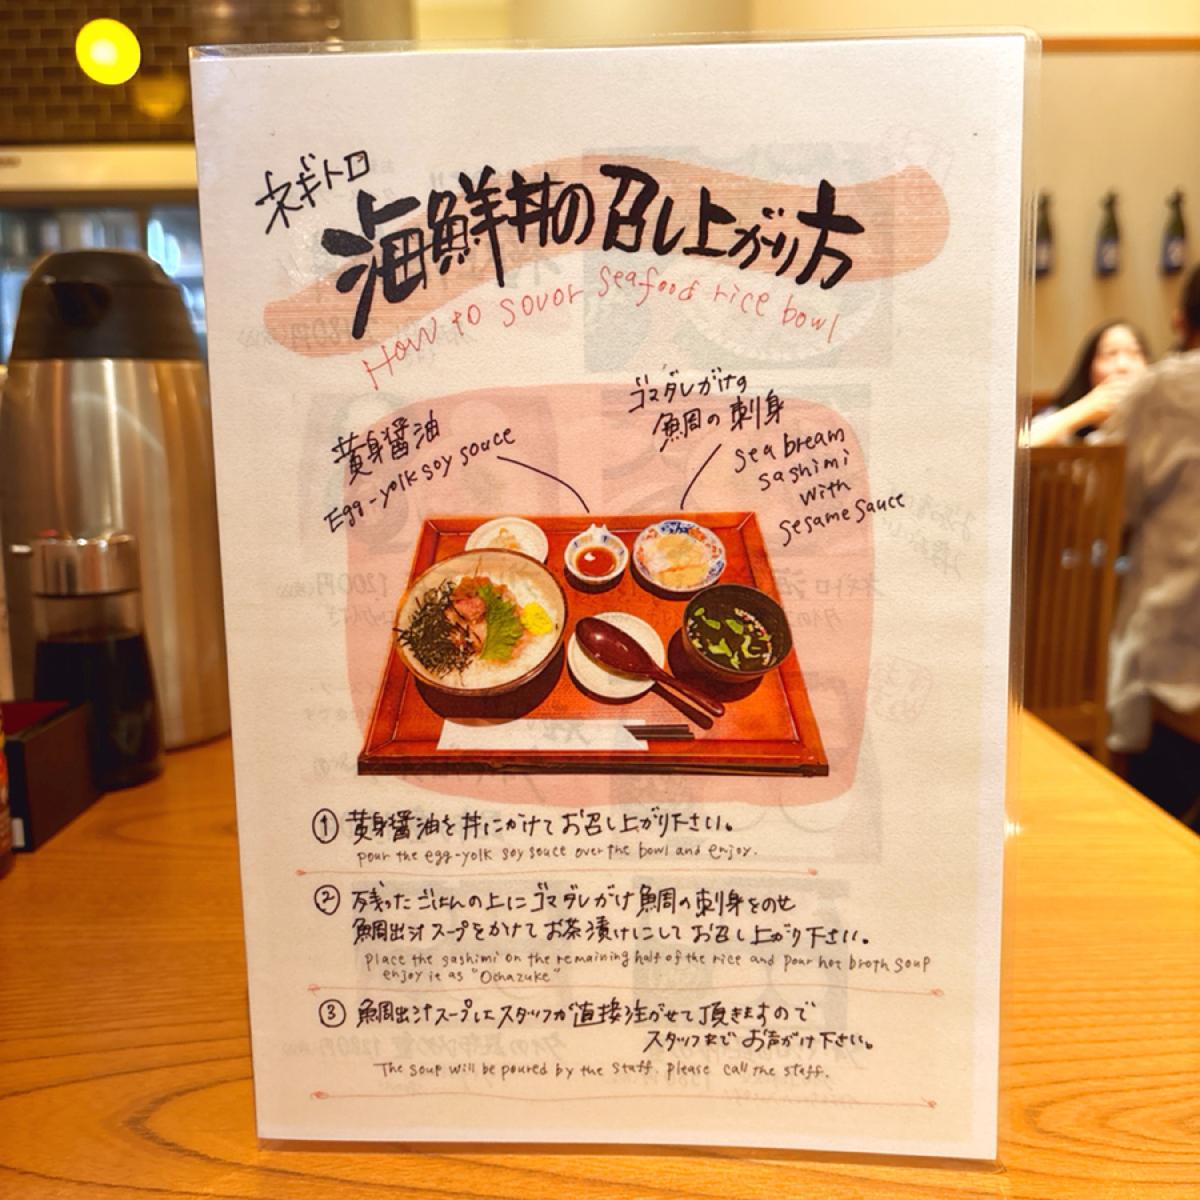 ネギトロ
海鮮丼の召し上がり方
How to savor seafood rice bowl
黄身醤油
Egg-yolk soy souce
ゴマダレがけの
鯛の刺身
sea bream
sashimi
with
sesame sauce
① 黄身醤油を丼にかけてお召し上がり下さい。
pour the egg-yolk soy souce over the bowl and enjoy.
② 残ったごはんの上にゴマダレがけ鯛の刺身をのせ
鯛出汁スープをかけてお茶漬けにしてお召し上がり下さい。
place the sashimi on the remaining half of the rice and pour hot broth soup
enjoy it as "Ochazuke"
③ 鯛出汁スープはスタッフが直接注がせて頂きますので
スタッフまでお声がけ下さい。
The soup will be poured by the staff. please call the staff.